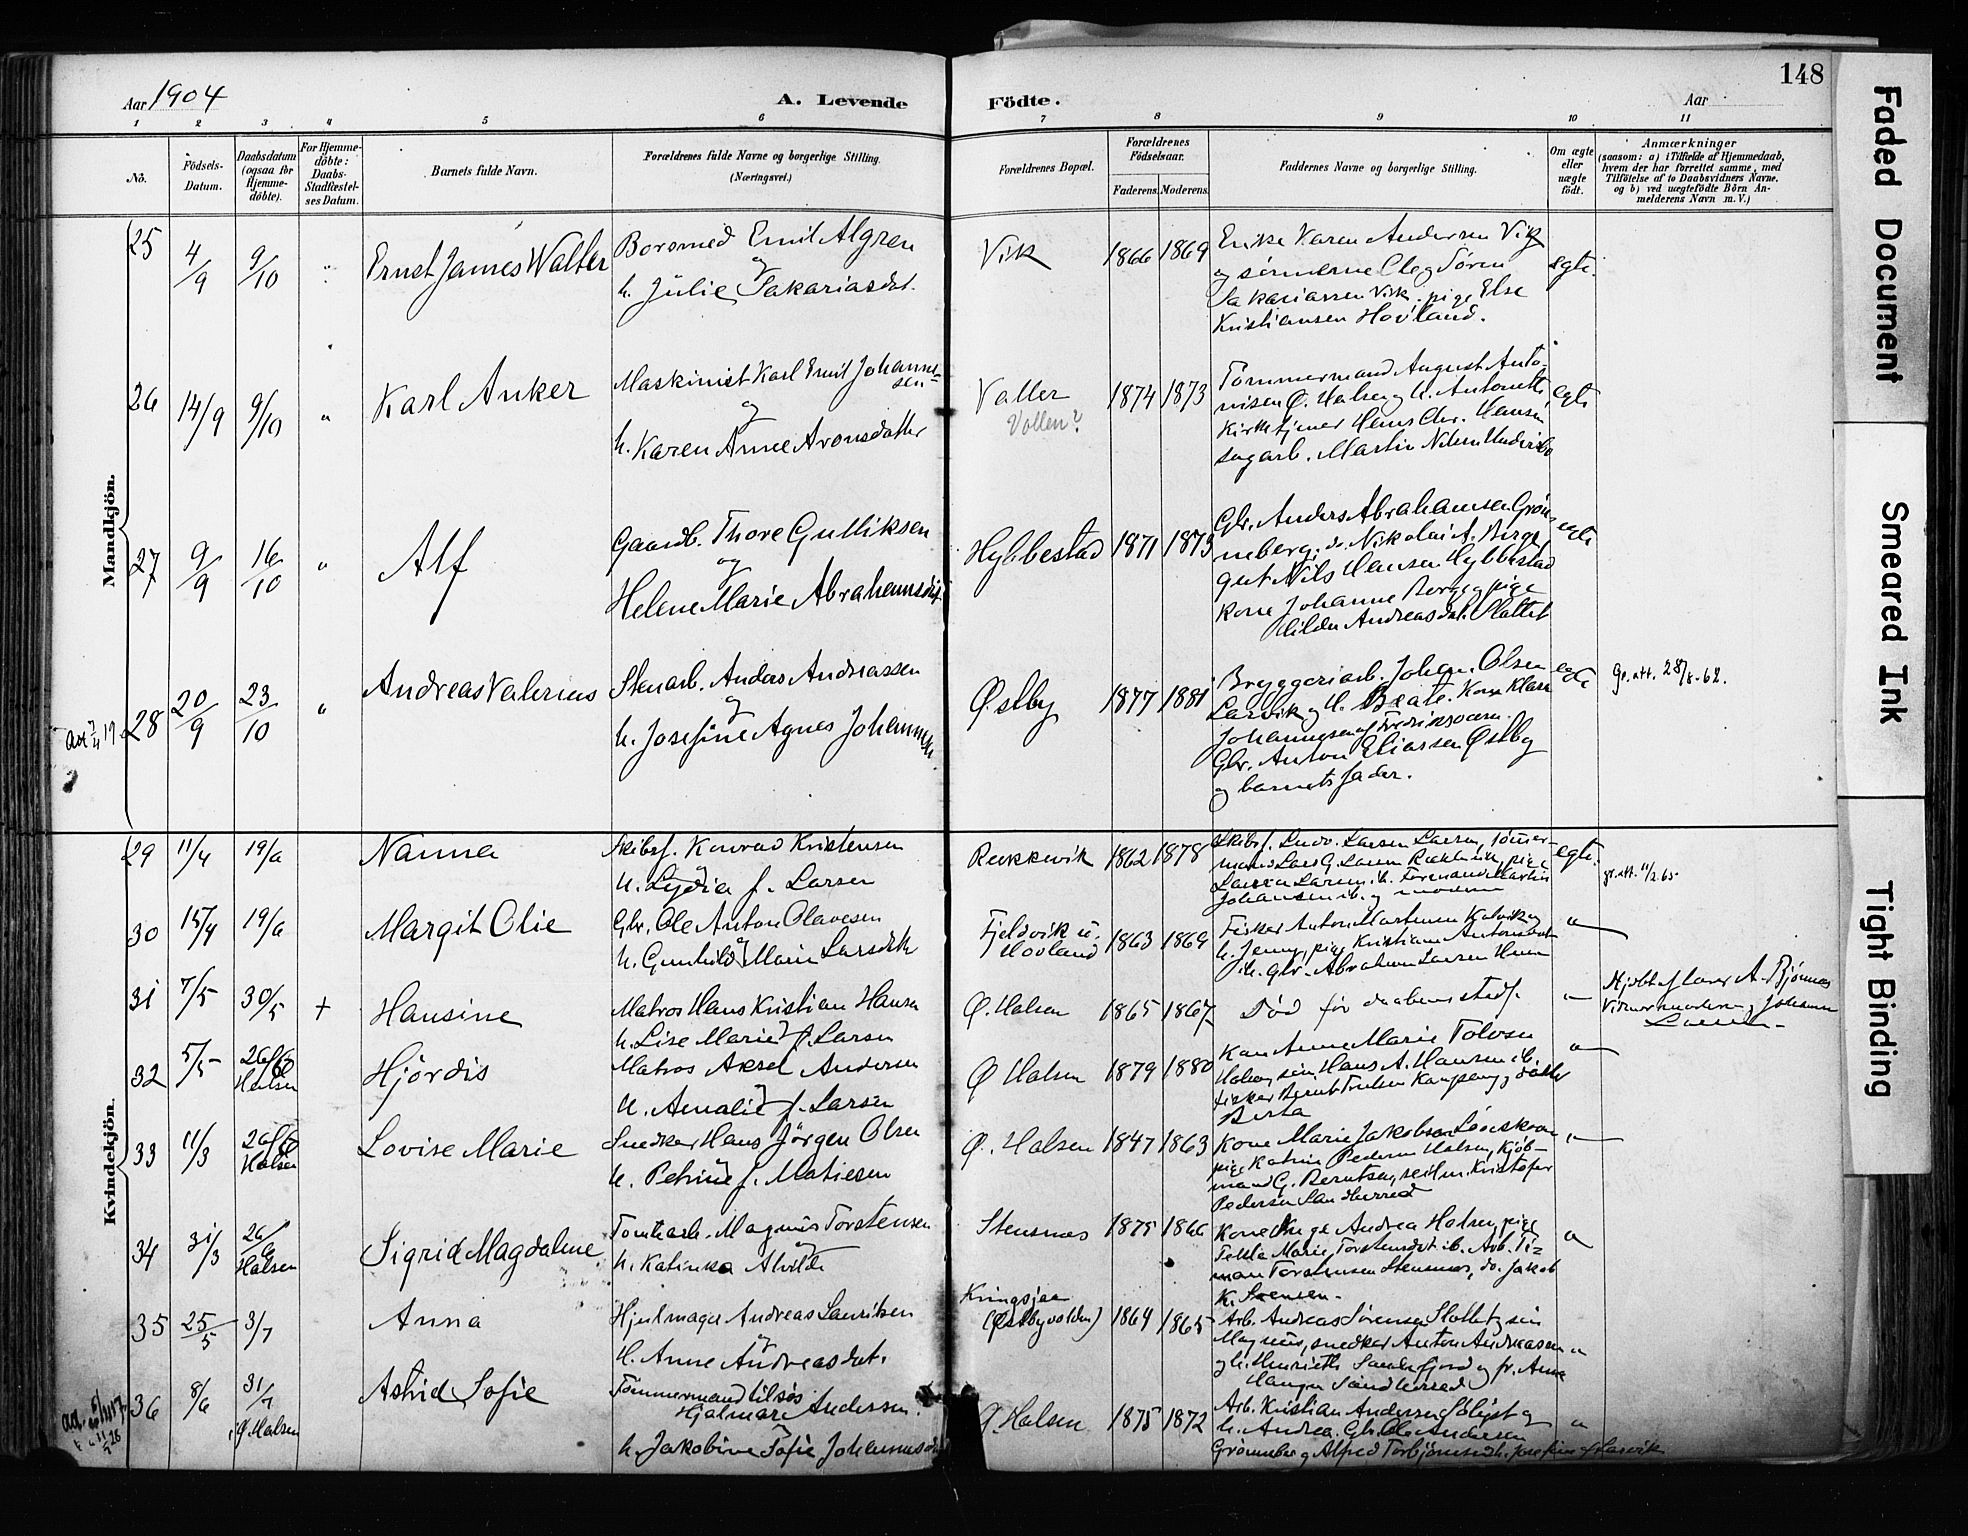 148
Aar 1904
A. Levende
Födte.
Aar
1 2 3 4 5 6 7 8 9 10 11
No.
Födsels-Datum.
Daabsdatum (ogsaa for Hjemme-döbte).
For Hjemme-döbte: Daabs-Stadfæstel-ses Datum.
Barnets fulde Navn.
Forældrenes fulde Navne og borgerlige Stilling.
(Næringsvei.)
Forældrenes Bopæl.
Forældrenes Födselsaar.
Faderens. Moderens.
Faddernes Navne og borgerlige Stilling.
Om ægte eller uægte födt.
Anmærkninger
(saasom: a) i Tilfælde af Hjemmedaab,
hvem der har forrettet samme, med
Tilföielse af to Daabsvidners Navne.
og b) ved uægtefödte Börn An-
melderens Navn m. V.)
Mandkjön.
25 4/9 9/10 " Ernst James Walter
Emil Algren
og
h. Julie Sakariasdat.
Vik 1866 1869
Enke Karen Andersen Vik
og sönnerne Ole og Sören
Sakariassen Vik, pige Else
Kristiansen Hovland.
egte.
26 14/9 9/10 " Karl Anker
Maskinist Karl Emil Johannes-
sen
og
h. Karen Anne Aronsdatter
Valler
Vollen?
1874 1873
Tömmermand August Anto-
nisen Ø. Halsen og h. Antonette
Kirketjener Hans Chr. Hansen
sagarb. Martin
egte
27 9/9 16/10 " Alf
Gaardb. Thore Gulliksen
og
Helene Marie Abrahamsdat
Hybbestad 1871 1873
Gbr. Anders Abrahamsen Grön-
neberg, do. Nikolai A. Berge
gut Nils Hansen Hybbestad
kone Johanne Berge og pige
Hilda Andreasdat. Slottet
egte
28 20/9 23/10 " Andreas Valerius
Stenarb. Anders Andreassen
og
h. Josefine Agnes Johannesen.
Østby 1877 1881
Bryggeriarb. Johan Olsen
Larvik og h. Beate. Kone Klara
Johannesen af Fredriksværn.
Gbr. Anton Eliassen Østby
og barnets fader.
egte
gr.att. 28/8-62.
Kvindekjön.
29 11/4 19/6 Nanna
Skibsf. Konrad Kristensen
h. Lydia f. Larsen
Rækkevik 1862 1878
Skibsf. Ludv. Larsen Larsen, tömmer-
mand Lars G. Larsen Rækkevik, pige
Larsen ib. Formand Martin
Johansen ib. og moderen
egte.
gr.att. 11/2.65
30 15/4 19/6 Margit Olie
Gbr. Ole Anton Olavesen
og
h. Gunhild Marie Larsdtr
Fjeldvik u.
Hovland
1863 1869
Fisker Anton Martinsen Kalvik og
h. Jenny, pige Kristiane Antonsdat
ib. gbr. Abraham Larsen
"
31 7/5 30/5 + Hansine
Matros Hans Kristian Hansen
h. Lise Marie f. Larsen
Ø. Halsen 1865 1867
Död før daabens stadf.
"
Hjdöbt af lærer A. Bjönnes
Vidner moderen og Johanne
Larsen
32 5/5 26/6 Halsen Hjördis
Matros Aksel Andersen
og
h. Amalie f. Larsen
Ø Halsen 1879 1880
Kone Anne Marie Tolvsen
Halsen, sön Hans A. Hansen ib.
fisker Bernt og datter
Berta
"
33 11/3 26/6 Halsen Lovise Marie
Snedker Hans Jörgen Olsen
og
h. Petrine f. Matiesen
Ø. Halsen 1847 1863
Kone Marie Jakobsen
pige Katrine Pedersen Halsen, kjöb-
mand G. Berntsen, seilm. Kristofer
Pedersen Sandherred
"
34 31/3 26/6 Halsen Sigrid Magdalene
Tomtearb. Magnus Torstensen
og
h. Katinka Alvilde
Stensnes 1875 1866
Kone Inge Andrea Halsen, pige
Tekla Marie Torstensdat ib. Arb. Ti-
man Torstensen Stensnes, do. Jakob
K. Svensen.
"
35 25/5 3/7 Anna
Hjulmager Andreas Lauritsen
og
h. Anne Andreasdat.
Kringsjaa
(Østbyvolden)
1864 1865
Arb. Andreas Sörensen Slottet og sön
Magnus, snedker Anton Andreasen
og h. Henriette Sandefjord og fr. Anna
Haugen Sandherred
"
36 8/6 31/7 Ø. Halsen Astrid Sofie
Tömmermand tilsös
Hjalmar Andersen.
h. Jakobine Sofie Johannesdat
Ø Halsen 1875 1872
Arb. Kristian Andersen og
h. Andrea. Gbr. Ole Andersen
Grönneberg og Alfred Torbjörnsen h. Josefine af Larvik
"
Faded Document
Smeared Ink
Tight Binding